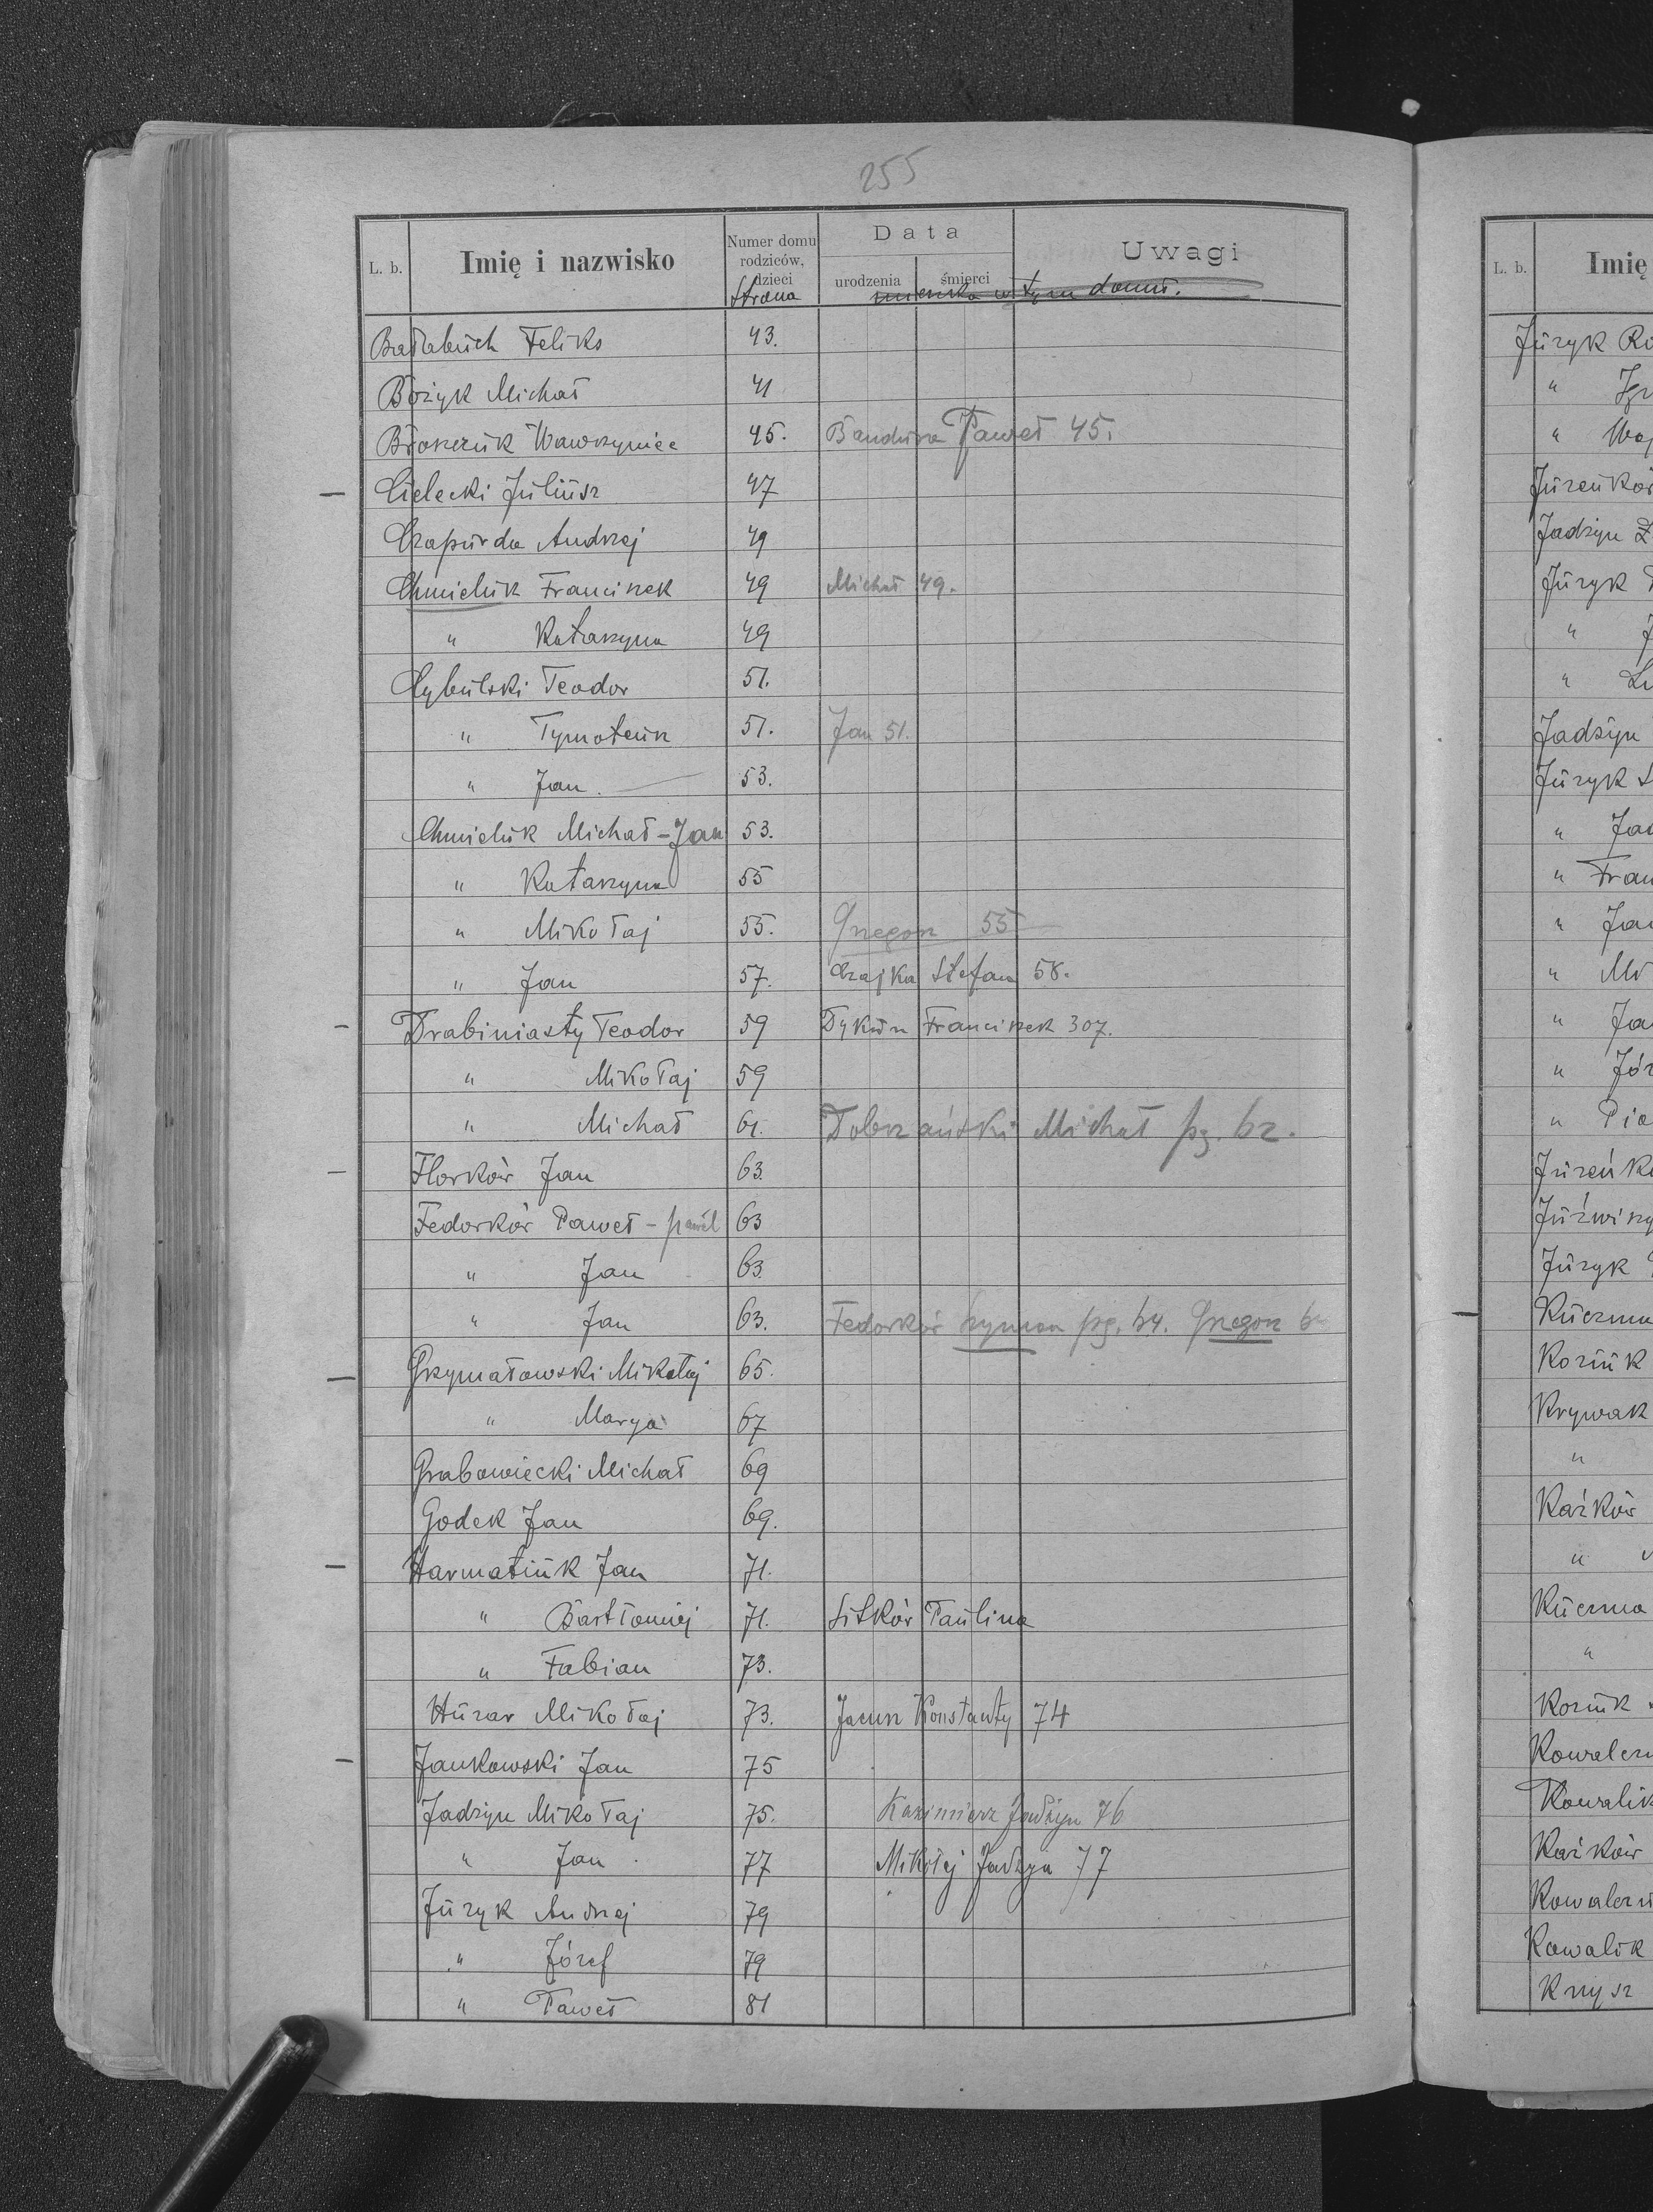 255
L. b. Imię i nazwisko Numer domu rodziców, dzieci Strona Data urodzenia śmierci Uwagi
mieszka w tym domu.
Bałabuch Feliks 43.
Bożyk Michał 41
Błaszczuk Wawrzyniec 45. Bandura Paweł 45.
Cielecki Juliusz 47
Czapurda Andrzej 49
Chmieluk Franciszek 49 Michał 49.
" Katarzyna 49
Cybulski Teodor 51.
" Tymoteusz 51. Jan 51.
" Jan. 53.
Chmieluk Michał - Jan 53.
" Katarzyna 55
" Mikołaj 55. Grzegorz 55
" Jan 57. Czajka Stefan 58.
Drabiniasty Teodor 59 Dykun Franciszek 307.
" Mikołaj 59
" Michał 61. Dobrzański Michał pg. 62.
Florków Jan 63
Fedorków Paweł - paweł 63
" Jan 63.
" Jan 63. Fedorków Szymon pg. 64. Grzegorz
Grzymałowski Mikołaj 65.
" Marya 67
Grabowiecki Michał 69
Godek Jan 69.
Harmatiuk Jan 71.
" Bartłomiej 71. Sitków Paulina
" Fabian 73.
Huzar Mikołaj 73. Konstanty 74
Jankowski Jan 75
Jadżyn Mikołaj 75. Kazimierz Jadżyn 76
" Jan. 77 Mikołaj Jadżyn 77
Juzyk Andrzej 79
" Józef 79
" Paweł 81
L. b. Imię
Juzyk
"
"
Jureńków
Jadżyn
Juzyk
"
"
Jadżyn
Juzyk
"
" Fran
" Jan
"
"
"
"
Juzyk
Kuczma
Koziuk
Krywak
"
Kaźków
"
Kuczma
"
Koziuk
Kowalik
Kaźków
Kowalik
Knysz